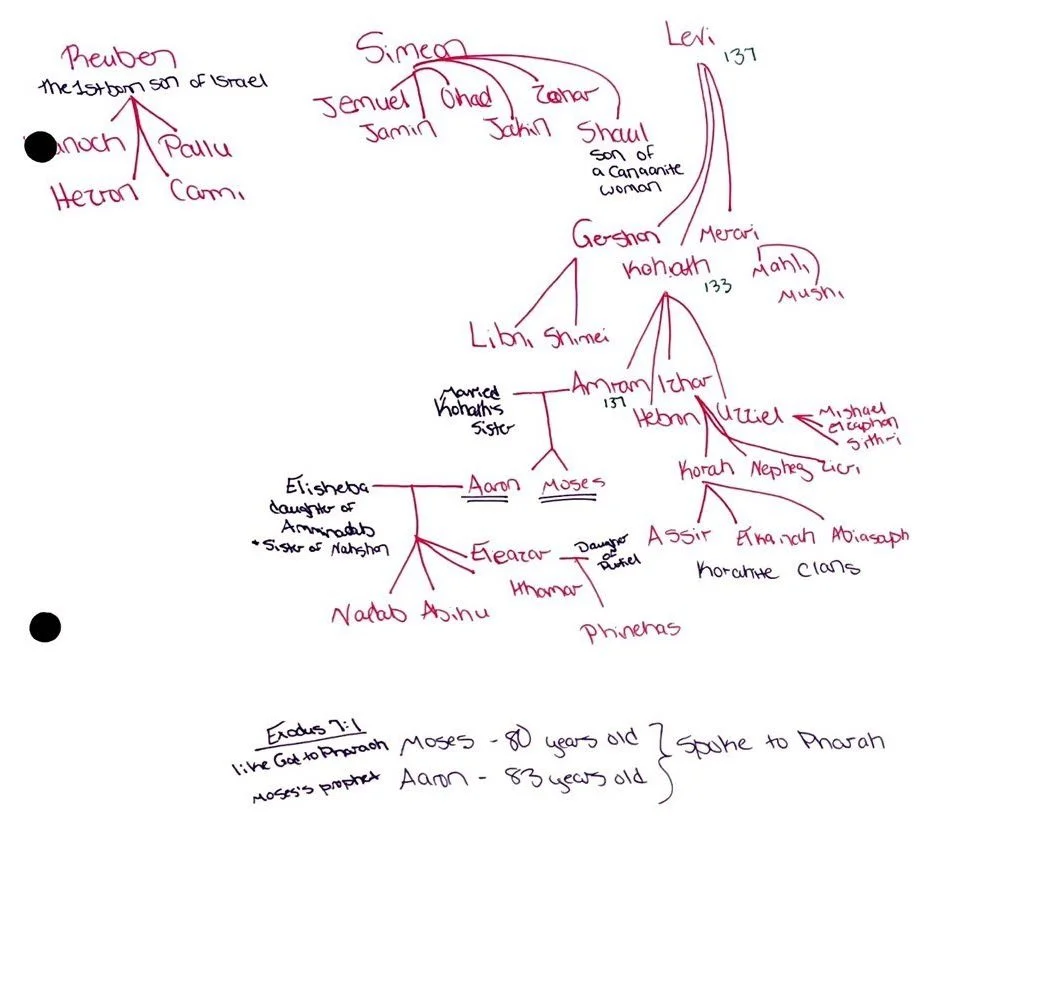 Reuben
the 1st born son of Israel
anoch
Pallu
Hezron
Carmi
Simeon
Jemuel
Ohad
Zohar
Jamin
Jakin
Shaul
son of
a Canaanite
woman
Levi
137
Gershon
Merari
Kohath
133
Mahli
Mushi
Libni Shimei
Married
Kohath's
Sister
Amram
137
Izhar
Hebron
Uzziel
Mishael
Elzaphan
Sithri
Korah Nepheg Zicri
Elisheba
daughter of
Amminadab
Sister of Nahshon
Aaron
Moses
Assir Elkanah Abiasaph
Korahite Clans
Eleazar
Daughter
of
Putiel
Ithamar
Nadab Abihu
Phinehas
Exodus 7:1
like God to Pharaoh Moses - 80 years old
Moses's prophet Aaron - 83 years old
Spoke to Pharah